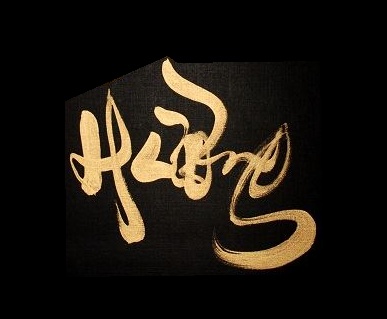 Hương